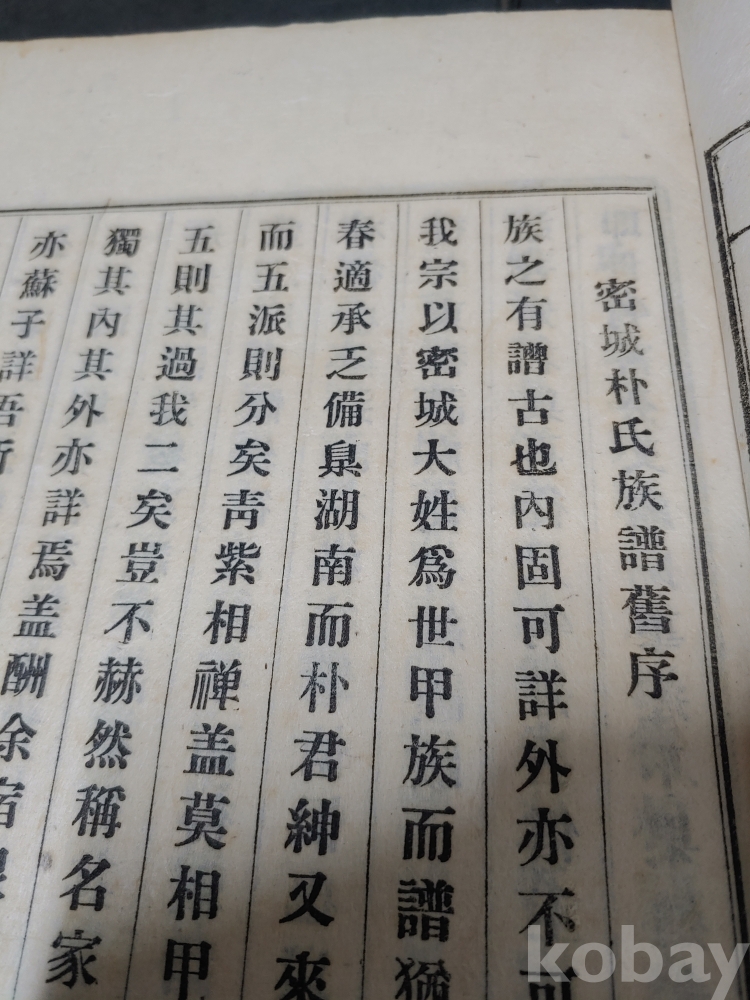 密城朴氏族譜舊序
族之有譜古也內固可詳外亦不可
我宗以密城大姓爲世甲族而譜猶
春適承乏備臬湖南而朴君紳又來
而五派則分矣靑紫相禪盖莫相甲
五則其過我二矣豈不赫然稱名家
獨其內其外亦詳焉盖酬余宿
亦蘇子詳吾所
kobay